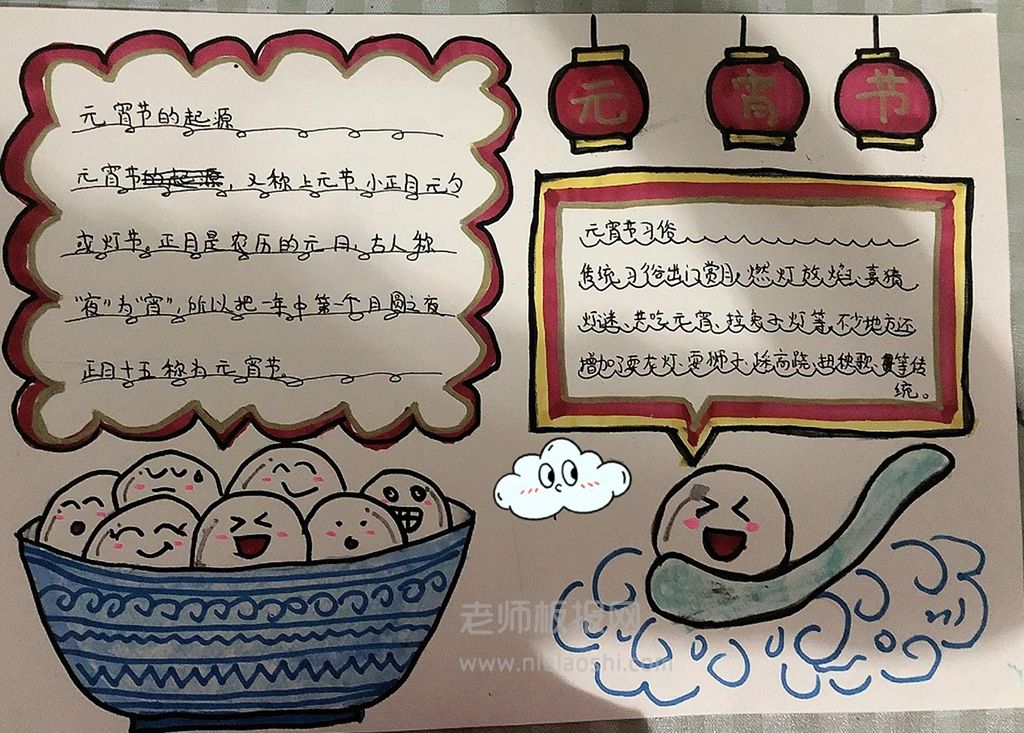 元宵节
元宵节的起源
元宵节的起源，又称上元节、小正月元夕
或灯节。正月是农历的元月，古人称
“夜”为“宵”，所以把一年中第一个月圆之夜
正月十五称为元宵节。
元宵节习俗
传统习俗出门赏月、燃灯放焰、喜猜
灯谜、共吃元宵、拉兔子灯等。不少地方还
增加了耍龙灯、耍狮子、踩高跷、扭秧歌等传
统。
老师板报网
www.nidaoshi.com